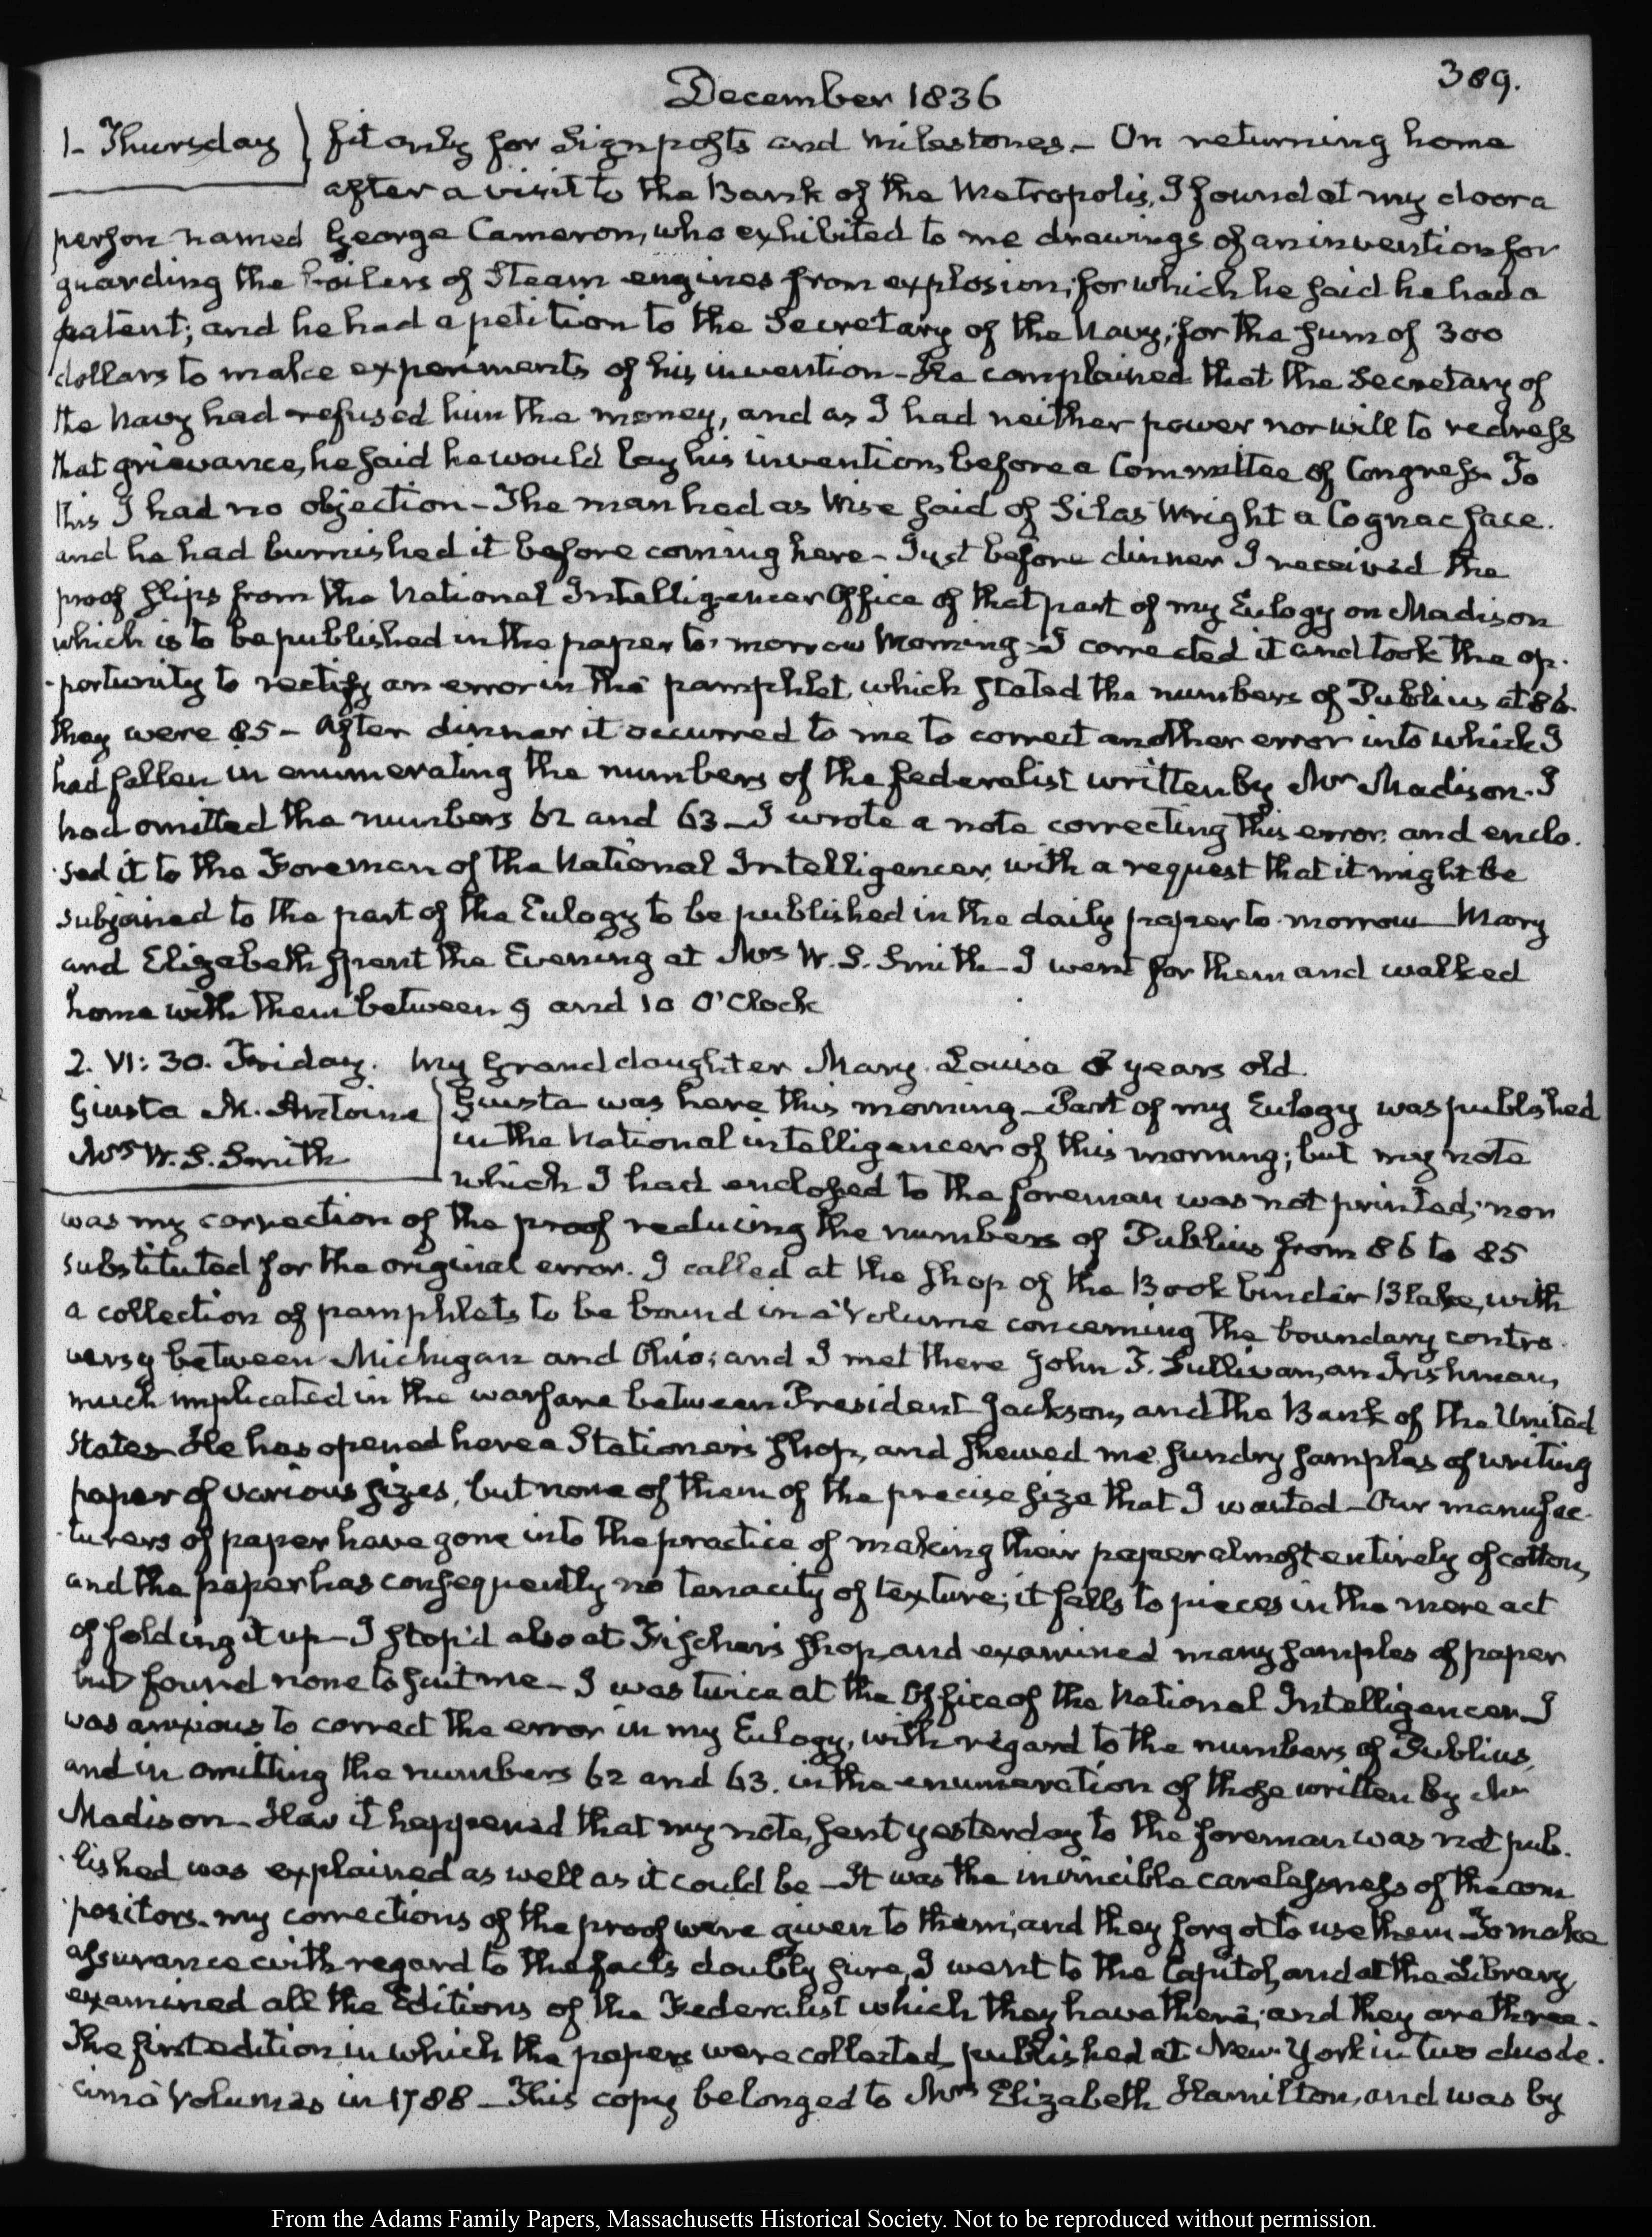 December 1836
389.
1. Thursday } fit only for Signposts and milestones.— On returning home
after a visit to the Bank of the Metropolis, I found at my door a
person named George Cameron, who exhibited to me drawings of an invention for
guarding the boilers of Steam engines from explosion; for which he said he had a
patent; and he had a petition to the Secretary of the Navy, for the sum of 300
dollars to make experiments of his invention— He complained that the Secretary of
the Navy had refused him the money, and as I had neither power nor will to redress
that grievance, he said he would lay his invention before a Committee of Congress. To
this I had no objection— The man had as Wise said of Silas Wright a Cognac face.
and he had burnished it before coming here— Just before dinner I received the
proof slips from the National Intelligencer Office of that part of my Eulogy on Madison
which is to be published in the paper to-morrow Morning— I corrected it and took the op-
-portunity to rectify an error in the pamphlet, which stated the numbers of Publius at 86.
they were 85— After dinner it occurred to me to correct another error into which I
had fallen in enumerating the numbers of the Federalist written by Mr Madison. I
had omitted the numbers 62 and 63— I wrote a note correcting this error, and enclo-
-sed it to the Foreman of the National Intelligencer, with a request that it might be
subjoined to the part of the Eulogy to be published in the daily paper to-morrow— Mary
and Elizabeth spent the Evening at Mrs W. S. Smith— I went for them and walked
home with them between 9 and 10 O'Clock
2. VI: 30. Friday. My Grand daughter Mary Louisa 8 years old.
Giusta M. Antoine
Mrs W. S. Smith
Giusta was here this morning— Part of my Eulogy was published
in the National intelligencer of this morning; but my note
which I had enclosed to the foreman was not printed; nor
was my correction of the proof reducing the numbers of Publius from 86 to 85
substituted for the original error. I called at the shop of the Book binder Blake, with
a collection of pamphlets to be bound in a Volume concerning the boundary contro-
versy between Michigan and Ohio; and I met there John T. Sullivan, an Irishman,
much implicated in the warfare between President Jackson, and the Bank of the United
States— He has opened here a Stationer's shop, and shewed me sundry samples of writing
paper of various sizes, but none of them of the precise size that I wanted— Our manufac-
-turers of paper have gone into the practice of making their paper almost entirely of cotton,
and the paper has consequently no tenacity of texture; it falls to pieces in the mere act
of folding it up— I stop'd also at Fischer's shop, and examined many samples of paper
but found none to suit me— I was twice at the Office of the National Intelligencer— I
was anxious to correct the error in my Eulogy, with regard to the numbers of Publius,
and in omitting the numbers 62 and 63. in the enumeration of those written by Mr
Madison— How it happened that my note, sent yesterday to the foreman was not pub-
-lished was explained as well as it could be— It was the invincible carelessness of the com
-positors. my corrections of the proof were given to them, and they forgot to use them— To make
assurance with regard to the facts doubly sure, I went to the Capitol, and at the Library,
examined all the Editions of the Federalist which they have there; and they are three.
The first edition in which the papers were collected, published at New-York in two duode-
cimo Volumes in 1788— This copy belonged to Mrs Elizabeth Hamilton, and was by
From the Adams Family Papers, Massachusetts Historical Society. Not to be reproduced without permission.